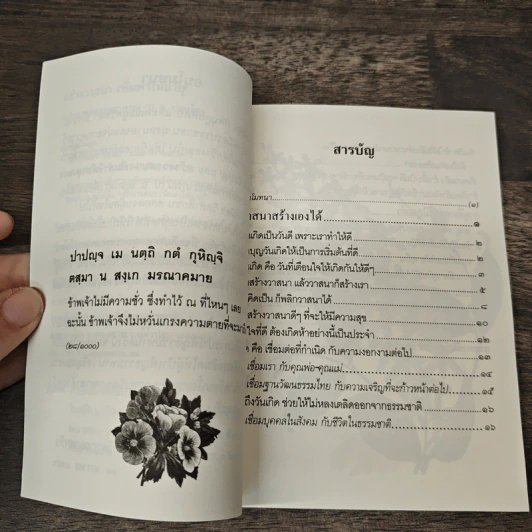 ปาปญฺจ เม นตฺถิ กตํ กุหิญฺจิ
ตสฺมา น สงฺเก มรณาคมาย
ข้าพเจ้าไม่มีความชั่ว ซึ่งทำไว้ ณ ที่ไหนๆ เลย
ฉะนั้น ข้าพเจ้าจึงไม่หวั่นเกรงความตายที่จะมา
(๒๘/๑๐๐๐)
สารบัญ
โมทนา (๑)
าสนาสร้างเองได้ ๑
เกิดเป็นวันดี เพราะเราทำให้ดี ๒
บุญวันเกิดให้เป็นการเริ่มต้นที่ดี ๒
เกิด คือ วันที่เตือนใจให้เกิดกันให้ดีๆ ๓
สร้างวาสนา แล้ววาสนาก็สร้างเรา ๕
คิดเป็น ก็พลิกวาสนาได้ ๘
สร้างวาสนาดีๆ ที่จะให้มีความสุข ๑๐
ใจที่ดี ต้องเกิดห้าอย่างนี้เป็นประจำ ๑๒
ด คือ เชื่อมต่อที่กำเนิด กับความงอกงามต่อไป ๑๓
เชื่อมเรา กับคุณพ่อ-คุณแม่ ๑๔
เชื่อมฐานวัฒนธรรมไทย กับความเจริญที่จะก้าวหน้าต่อไป ๑๕
ถึงวันเกิด ช่วยให้ไม่หลงเตลิดออกจากธรรมชาติ ๑๖
เชื่อมบุคคลในสังคม กับชีวิตในธรรมชาติ ๑๖